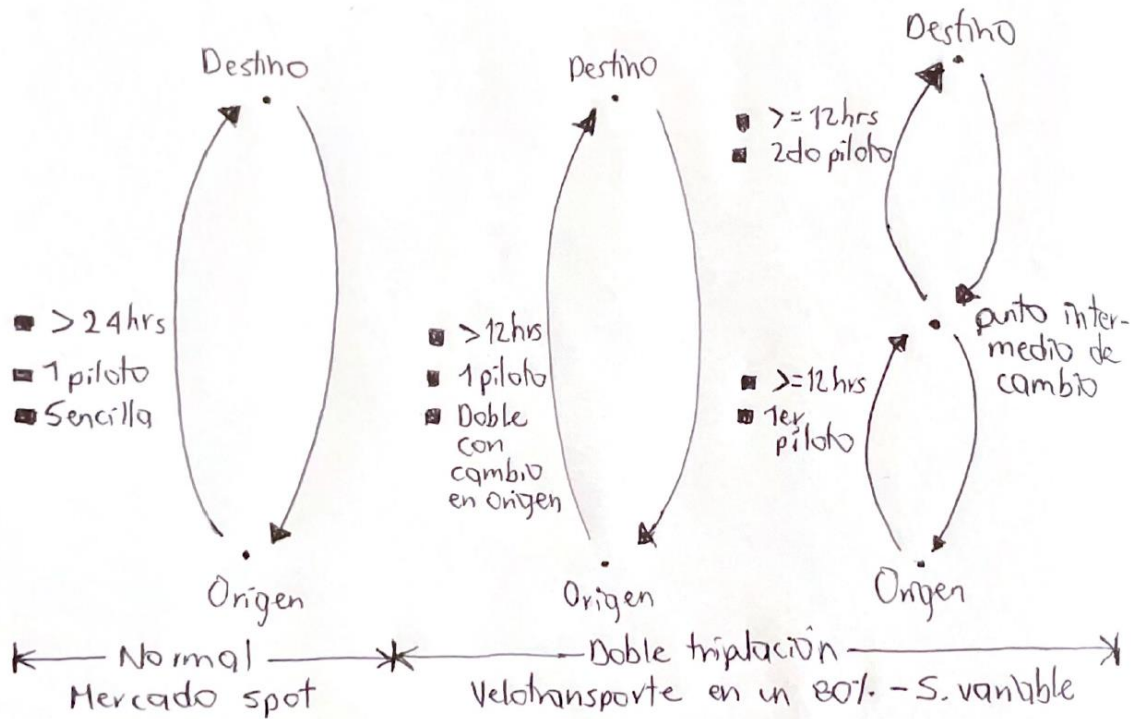 Destino
> 24hrs
1 piloto
Sencilla
Origen
Destino
> 12hrs
1 piloto
Doble
con
cambio
en origen
Origen
Destino
>= 12hrs
2do piloto
punto inter-
medio de
cambio
>= 12hrs
1er
piloto
Origen
Normal
Mercado spot
Doble triplación
Velotransporte en un 80% - S. variable